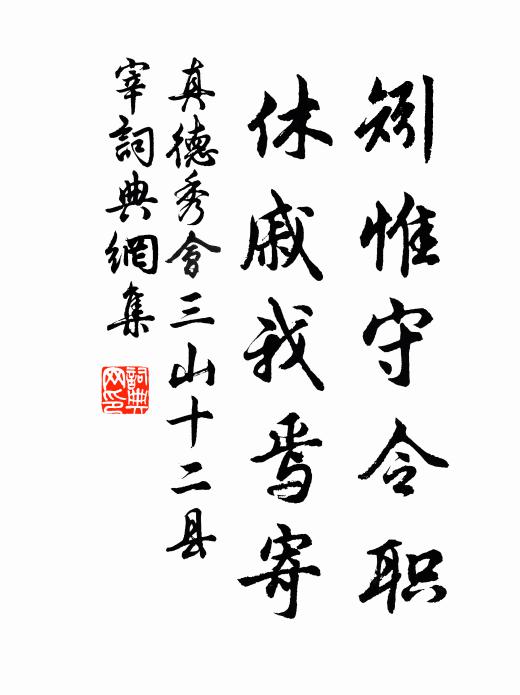 矧惟守令职
休戚我焉寄
真德秀會三山十二县
宰詞典網集
詞典
网印